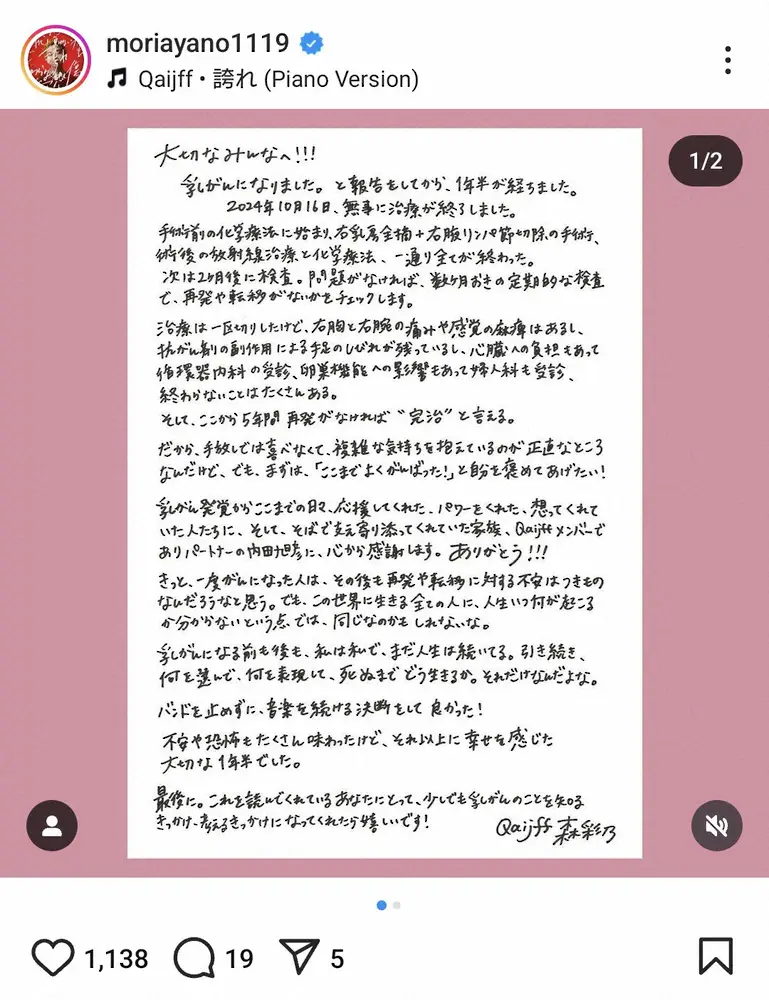 moriayano1119
Qaijff • 誇れ (Piano Version)
1/2
大切なみんなへ!!!
乳がんになりました。と報告をしてから、1年半が経ちました。
2024年10月16日、無事に治療が終了しました。
手術前の化学療法に始まり、右乳房全摘+右腋リンパ節切除の手術、
術後の放射線治療と化学療法、一通り全てが終わった。
次は2ヶ月後に検査。問題がなければ、数ヶ月おきの定期的な検査
で、再発や転移がないかをチェックします。
治療は一区切りしたけど、右胸と右腕の痛みや感覚の麻痺はあるし、
抗がん剤の副作用による手足のしびれが残っているし、心臓への負担もあって
循環器内科の受診、卵巣機能への影響もあって婦人科も受診、
終わらないことはたくさんある。
そして、ここから5年間再発がなければ“完治”と言える。
だから、手放しでは喜べなくて、複雑な気持ちを抱えているのが正直なところ
なんだけど、でも、まずは、「ここまでよくがんばった!」と自分を褒めてあげたい!
乳がん発覚からここまでの日々、応援してくれた、パワーをくれた、想ってくれて
いた人たちに、そして、そばで支え寄り添ってくれていた家族、Qaijffメンバーで
ありパートナーの内田旭彦に、心から感謝します。ありがとう!!!
きっと、一度がんになった人は、その後も再発や転移に対する不安はつきもの
なんだろうなと思う。でも、この世界に生きる全ての人に、人生いつ何が起こる
か分からないという点では、同じなのかもしれないな。
乳がんになる前も後も、私は私で、まだ人生は続いてる。引き続き、
何を選んで、何を表現して、死ぬまでどう生きるか。それだけなんだよな。
バンドを止めずに、音楽を続ける決断をして良かった!
不安や恐怖もたくさん味わったけど、それ以上に幸せを感じた
大切な1年半でした。
最後に。これを読んでくれているあなたにとって、少しでも乳がんのことを知る
きっかけ、考えるきっかけになってくれたら嬉しいです!
Qaijff 森彩乃
1,138
19
5